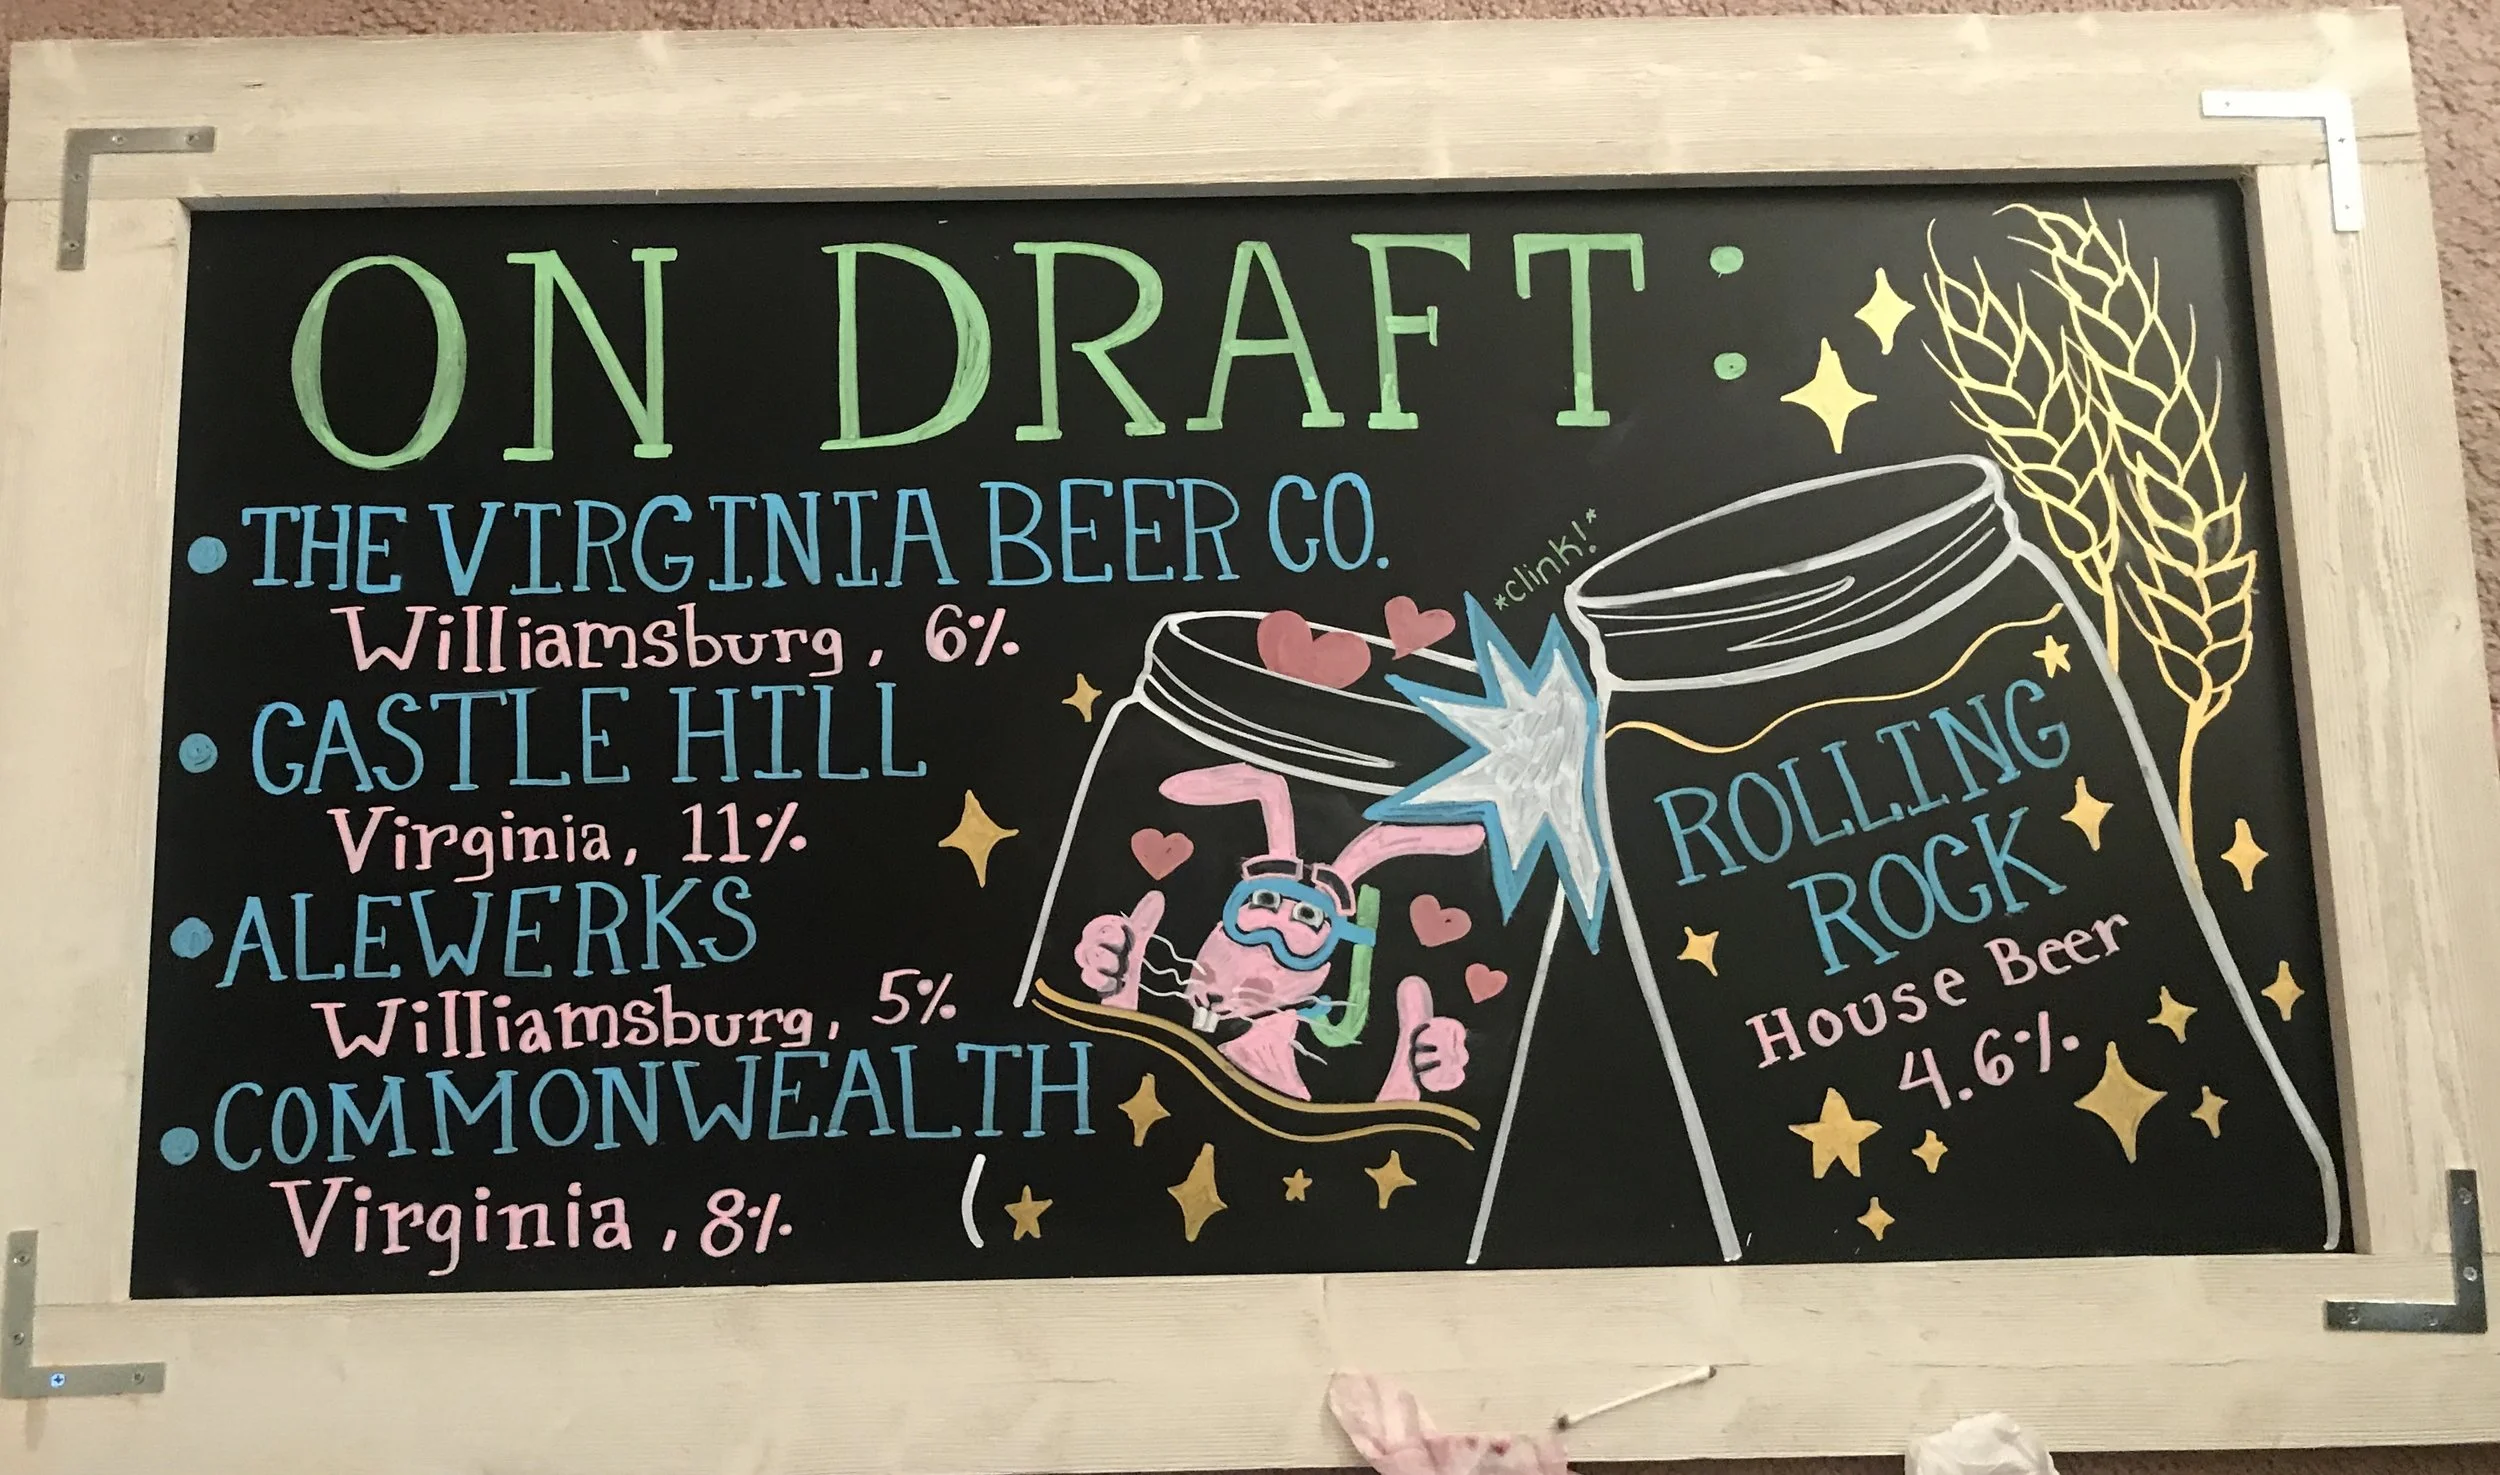 ON DRAFT:
• THE VIRGINIA BEER CO.
Williamsburg, 6%
• CASTLE HILL
Virginia, 11%
• ALEWERKS
Williamsburg, 5%
• COMMONWEALTH
Virginia, 8%
*clink!*
ROLLING
ROCK
House Beer
4.6%